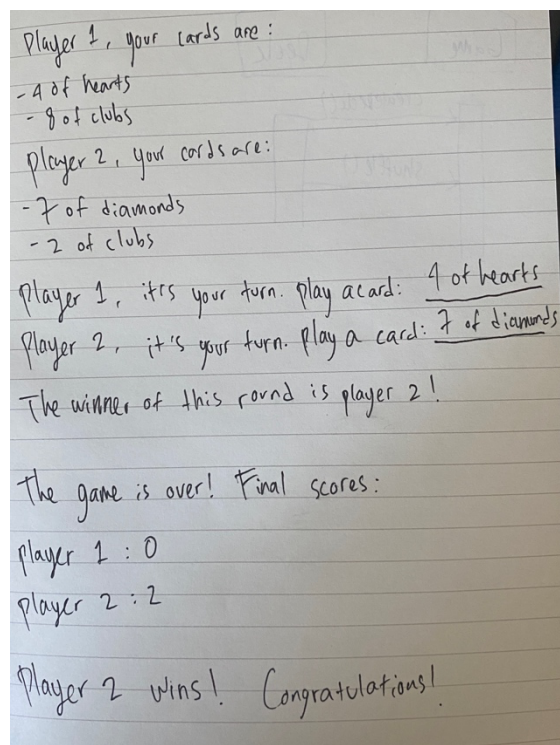 Player 1, your cards are:
- 4 of hearts
- 8 of clubs
player 2, your cards are:
- 7 of diamonds
- 2 of clubs
Player 1, it's your turn. Play a card: 4 of hearts
Player 2, it's your turn. Play a card: 7 of diamonds
The winner of this round is player 2!
The game is over! Final scores:
player 1 : 0
player 2 : 2
Player 2 wins! Congratulations!